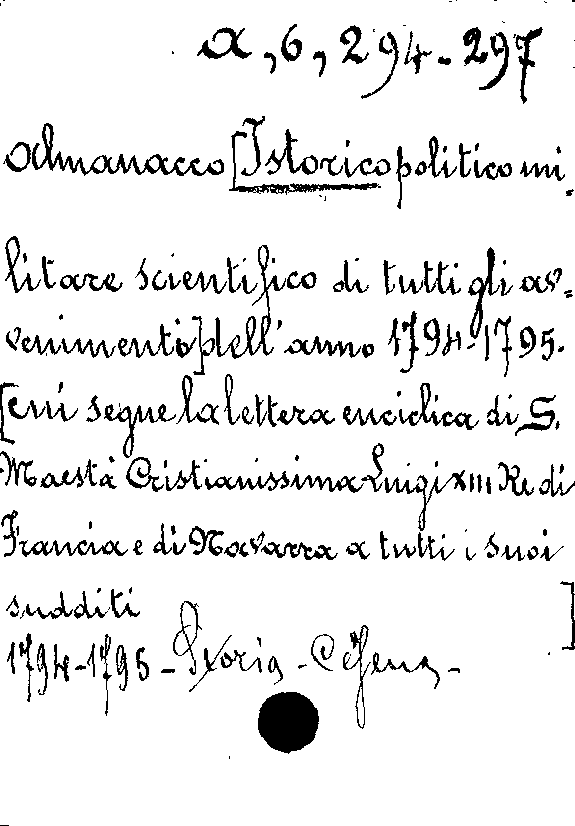 a, 6, 294-297
Almanacco [Istorico politico mi-
litare scientifico di tutti gli av-
venimenti] dell'anno 1794-1795.
[cui segue la lettera enciclica di S.
Maestà Cristianissima Luigi XIII Re di
Francia e di Navarra a tutti i suoi
sudditi ]
1794-1795 -